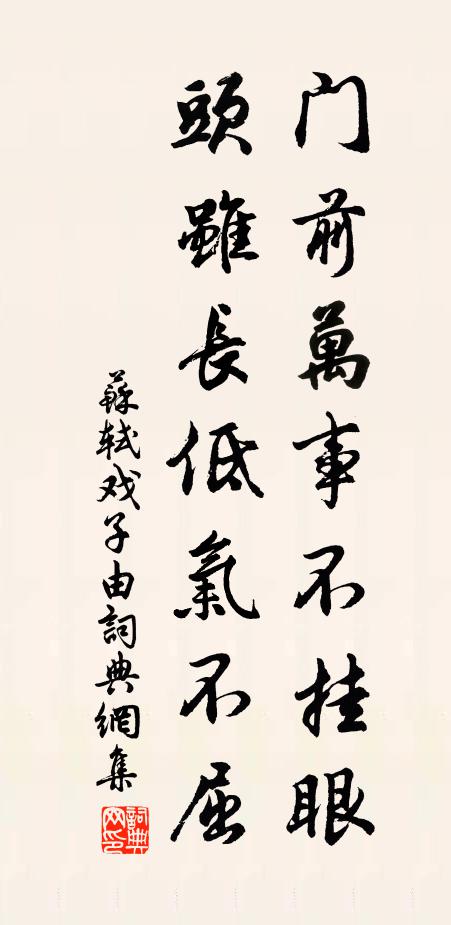 門前萬事不挂眼
頭雖長低氣不屈
蘇軾戏子由詞典網集
詞典网印